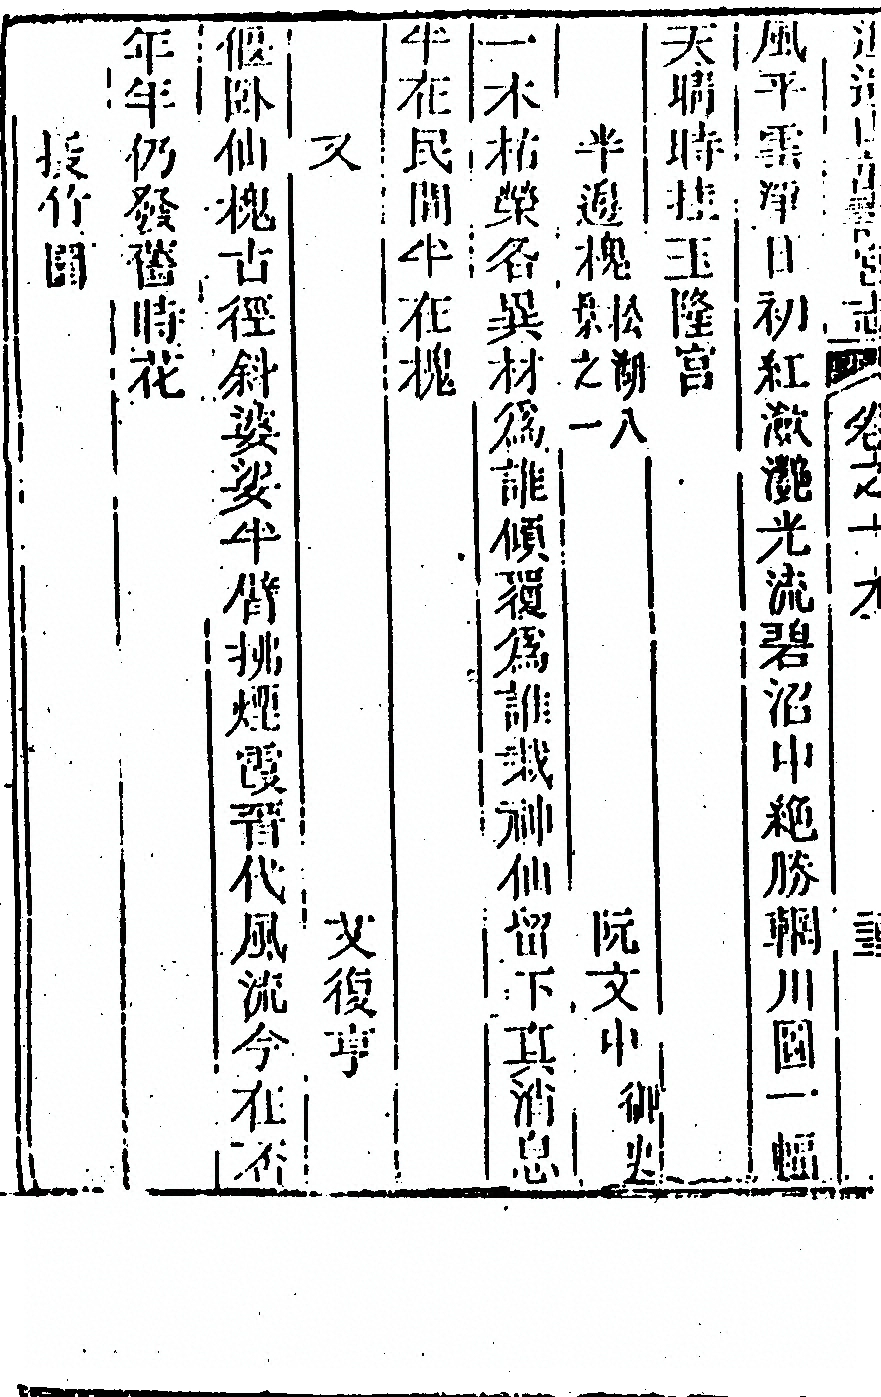 逍遙山萬壽宮志 卷之十
風平雲淨日初紅瀲灧光流碧沼中絶勝輞川圖一幅
天晴時挂玉隆宮
半邊槐 松湖八景之一 阮文中 御史
一木枯榮各異材爲誰傾覆爲誰栽神仙留下真消息
半在民間半在槐
又 艾復亨
偃卧仙槐古徑斜婆娑半臂挑煙霞晉代風流今在否
年年仍發舊時花
竹園